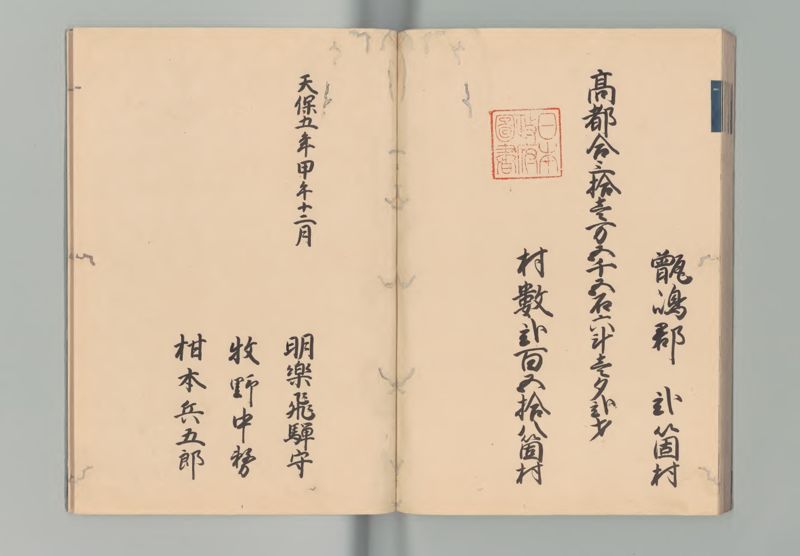 甑嶋郡 弐箇村
高都合三拾壱万五千五石六斗壱夕弐才
村数弐百五拾八箇村
日本
政府
図書
天保五年甲午十二月
明樂飛驒守
牧野中務
柑本兵五郎